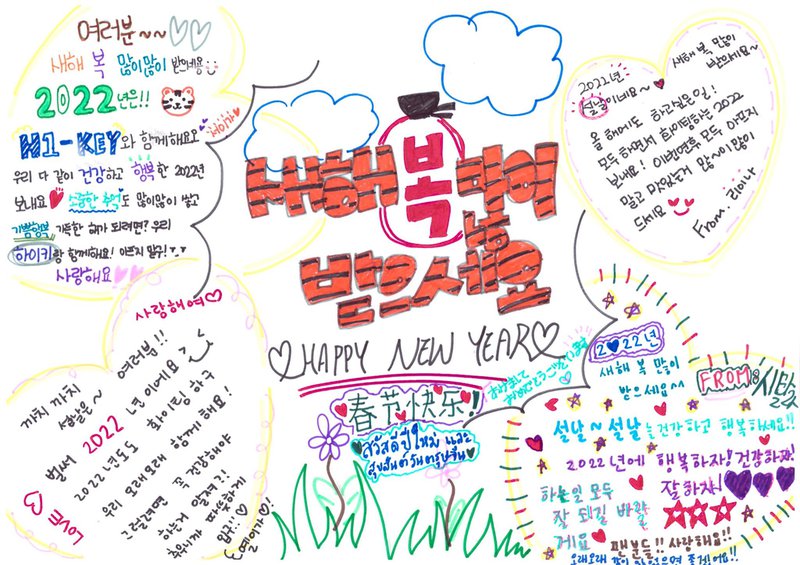 여러분~~♡♡
새해 복 많이많이 받아용
2022년은!!
H1-KEY와 함께해요
우리 다 같이 건강하고 행복한 2022년
보내요♥ 소중한 추억도 많이많이 쌓고
기쁨행복 가득한 해가 되려면? 우리
하이키랑 함께해요! 아프지 말구!
사랑해요♡♡
서이가♡
새해 복 많이
받으세요
♡HAPPY NEW YEAR♡
春节快乐!
สวัสดีปีใหม่ และ
สุขสันต์วันตรุษจีน
2022년
설날이네요~♡
새해 복 많이
받아세요~
올 해에도 하고싶은일!
모두 하면서 화이팅하는 2022
보내요! 이번연휴 모두 아프지
말고 맛있는거 많~이 많이
드세요
From 리이나
사랑해여♡
여러분!!
까치 까치
설날은~
벌써 2022년 이에요
2022년도도 화이팅 하구
우리 오래오래 함께 해요!
그럴려면 꼭 건강해야
하는거 알죠?
추우니까 따뜻하게
입구!!♡
(옐이가♡)
LOVE♡
2♥22년
새해 복 많이
받으세요^^
FROM
시탈
설날~설날 늘 건강하고 행복하세요!!
2022년에 행복하자! 건강하자!
잘하자!
하는일 모두
잘 돼길 바랄
게요
팬분들!! 사랑해요!!